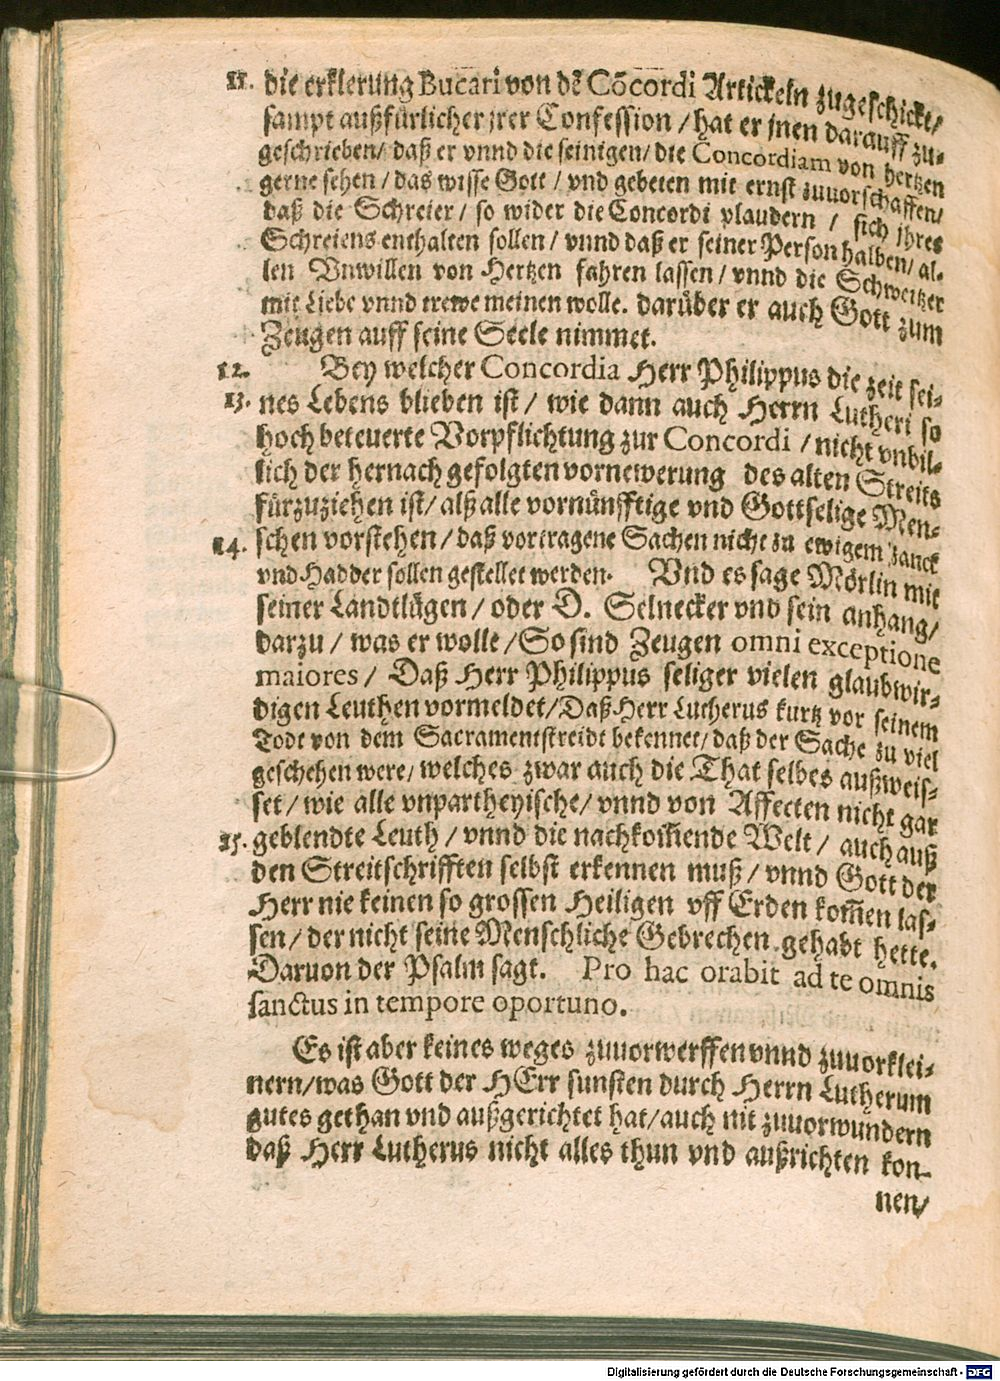 11. die erklerung Bucari von dẽ Cõcordi Artickeln zugeschickt/
sampt außfürlicher jrer Confession / hat er jnen darauff zu-
geschrieben/ daß er vnnd die seinigen/ die Concordiam von hertzen
gerne sehen / das wisse Gott / vnd gebeten mit ernst zuuorschaffen/
daß die Schreier / so wider die Concordi plaudern / sich ihres
Schreiens enthalten sollen / vnnd daß er seiner Person halben/ al-
len Vnwillen von Hertzen fahren lassen / vnnd die Schweitzer
mit Liebe vnnd trewe meinen wolle. darüber er auch Gott zum
Zeugen auff seine Seele nimmet.
12. Bey welcher Concordia Herr Philippus die zeit sei-
13. nes Lebens blieben ist / wie dann auch Herrn Lutheri so
hoch beteuerte Vorpflichtung zur Concordi / nicht vnbil-
lich der hernach gefolgten vornewerung des alten Streits
fürzuziehen ist/ alß alle vornünfftige vnd Gottselige Men-
14. schen vorstehen / daß vortragene Sachen nicht zu ewigem zanck
vnd Hadder sollen gestellet werden. Vnd es sage Mörlin mit
seiner Landtlügen / oder D. Selnecker vnd sein anhang/
darzu / was er wolle / So sind Zeugen omni exceptione
maiores / Daß Herr Philippus seliger vielen glaubwir-
digen Leuthen vormeldet/ Daß Herr Lutherus kurtz vor seinem
Todt von dem Sacramentstreidt bekennet/ daß der Sache zu viel
geschehen were/ welches zwar auch die That selbes außweis-
set / wie alle vnpartheyische/ vnnd von Affecten nicht gar
15. geblendte Leuth / vnnd die nachkom̃ende Welt / auch auß
den Streitschrifften selbst erkennen muß / vnnd Gott der
Herr nie keinen so grossen Heiligen vff Erden kom̃en las-
sen / der nicht seine Menschliche Gebrechen gehabt hette.
Daruon der Psalm sagt. Pro hac orabit ad te omnis
sanctus in tempore oportuno.
Es ist aber keines weges zuuorwerffen vnnd zuuorklei-
nern/ was Gott der HErr sunsten durch Herrn Lutherum
gutes gethan vnd außgerichtet hat/ auch nit zuuorwundern
daß Herr Lutherus nicht alles thun vnd außrichten kon-
nen/
Digitalisierung gefördert durch die Deutsche Forschungsgemeinschaft - DFG